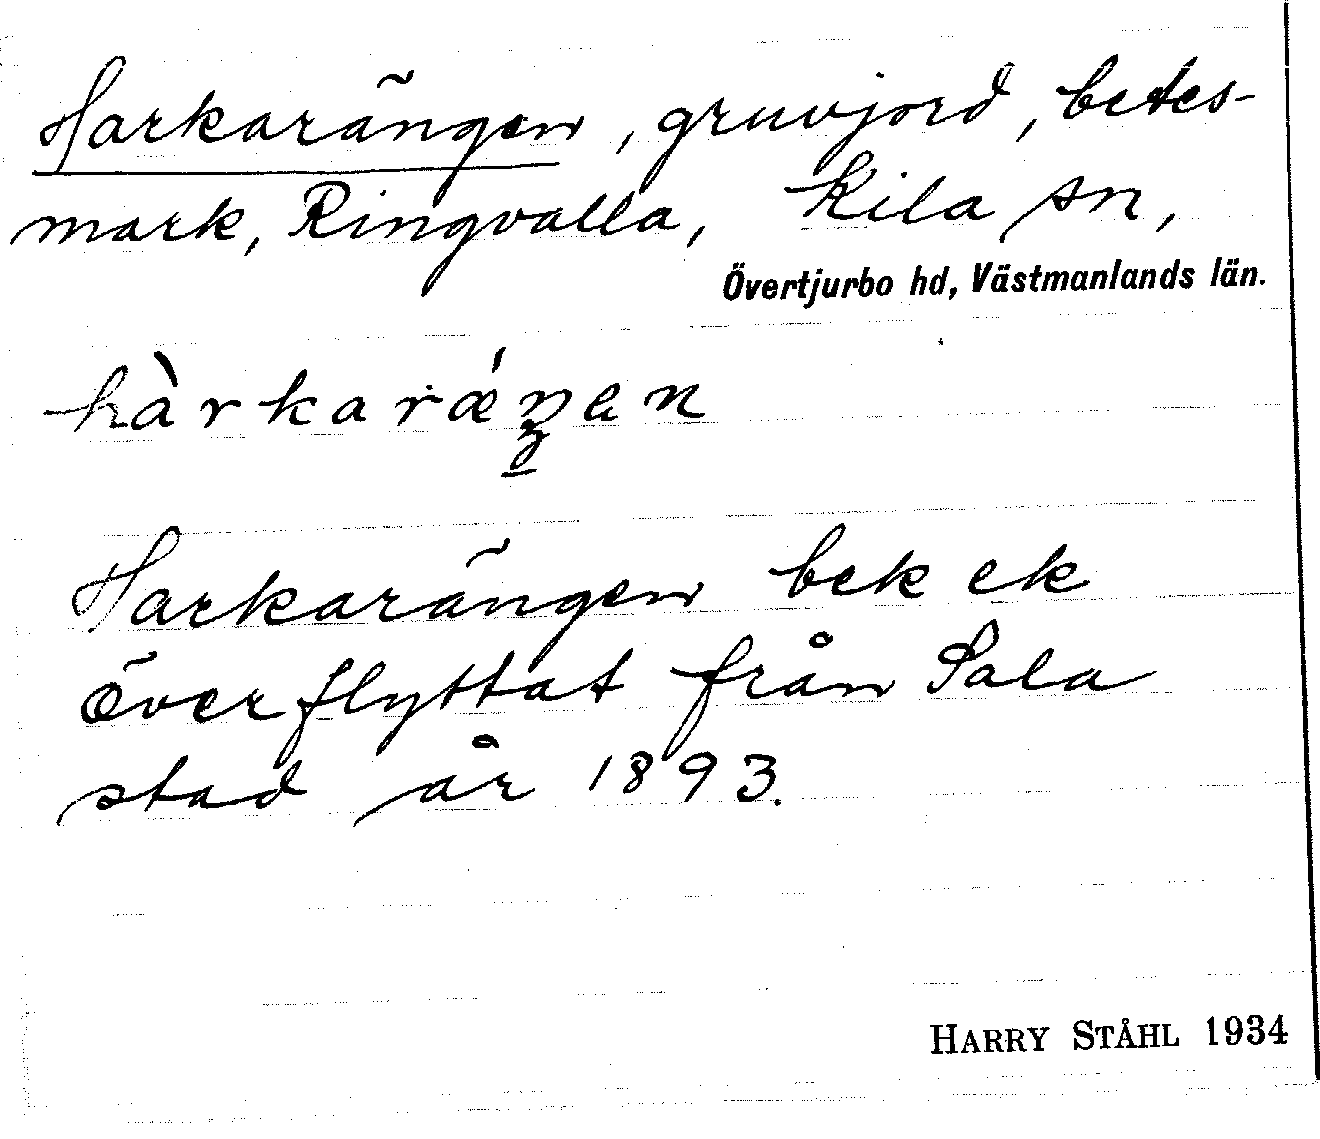 Harkarängen, gruvjord, betes-
mark, Ringvalla, Kila sn,
Övertjurbo hd, Västmanlands län.
hàrkarǽŋen
Harkarängen bek ek
överflyttat från Sala
stad år 1893.
HARRY STÅHL 1934